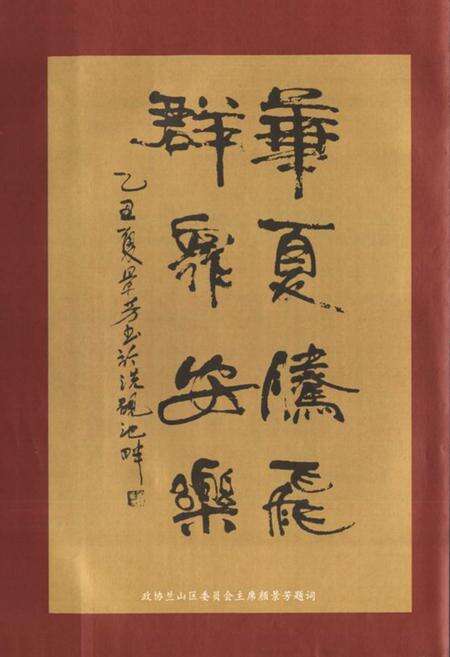 華夏騰飛
群安樂
乙丑夏景芳书於洗硯池畔
政协兰山区委员会主席颜景芳题词